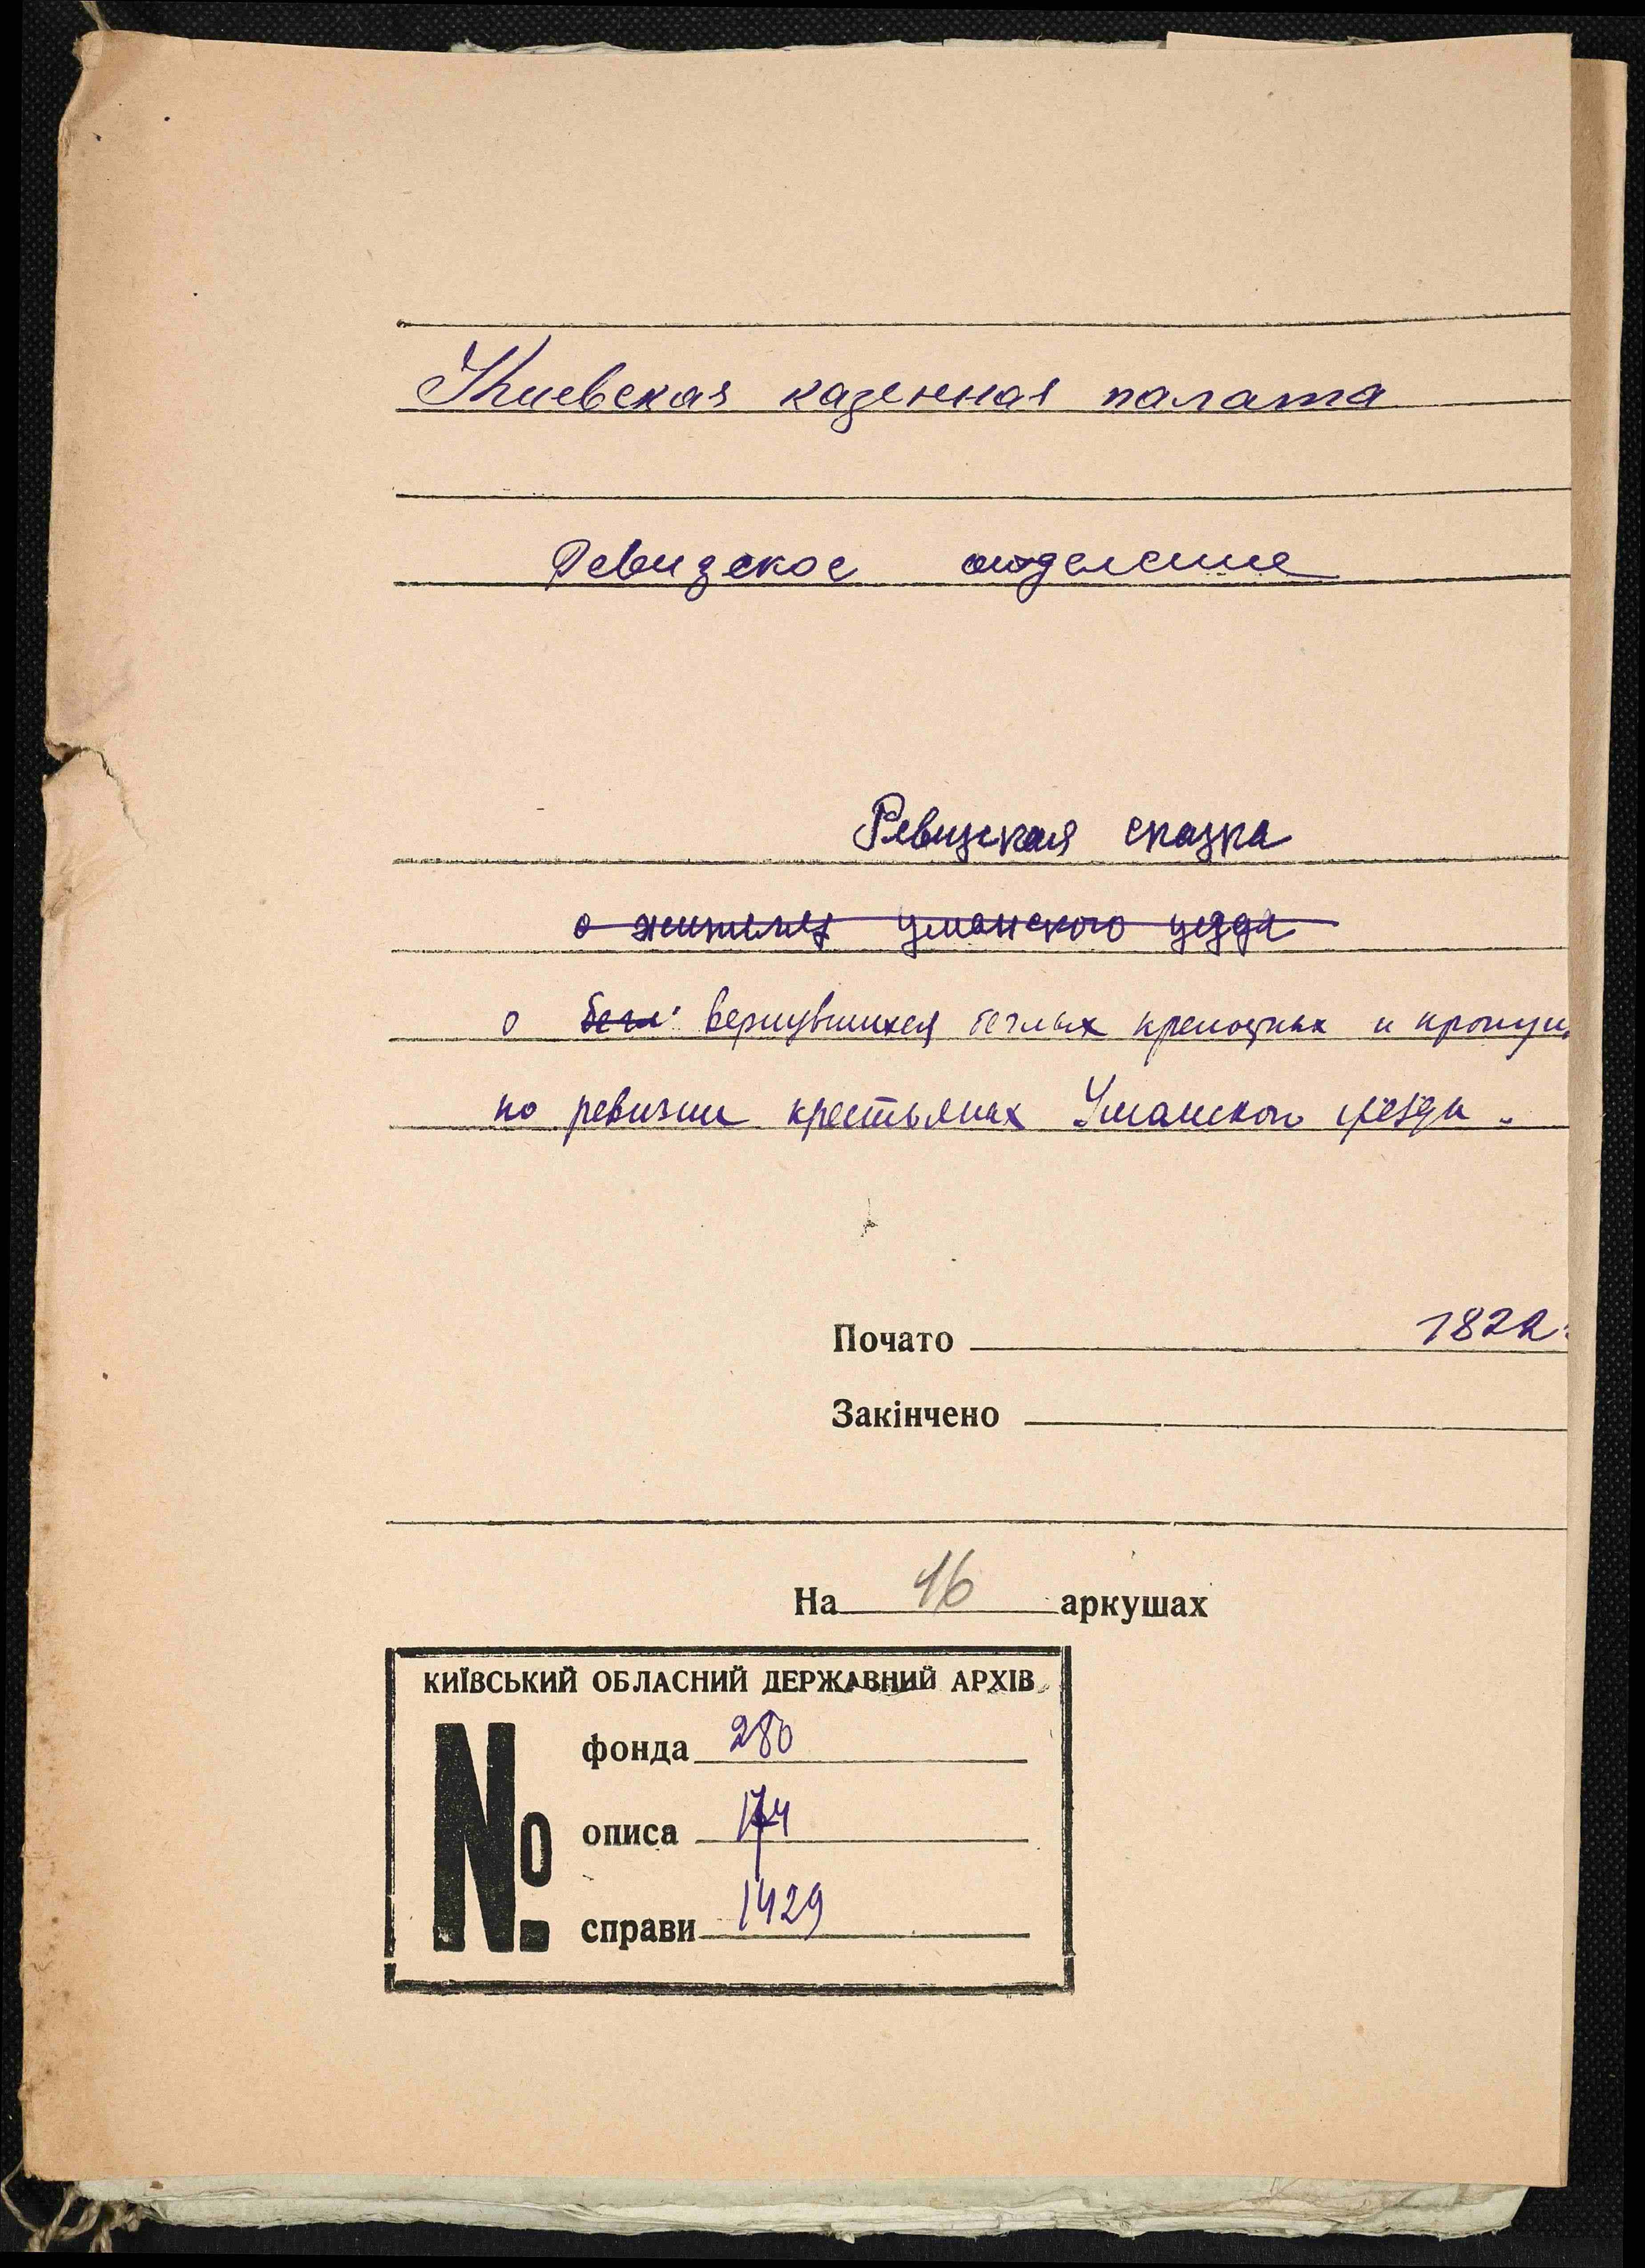 Киевская казенная палата
Ревизское отделение
Ревизская сказка
о жителях уманского уезда
о бегл. вернувшихся беглых крепостных и пропущ
по ревизии крестьянах Уманского уезда.
Почато 1822.
Закінчено
На 16 аркушах
КИЇВСЬКИЙ ОБЛАСНИЙ ДЕРЖАВНИЙ АРХІВ
№
фонда 280
описа 174
справи 1429